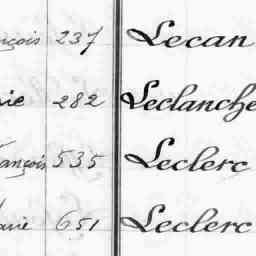 nçois 237 Lecan
rie 282 Leclanche
ançois 535 Leclerc
arie 651 Leclerc